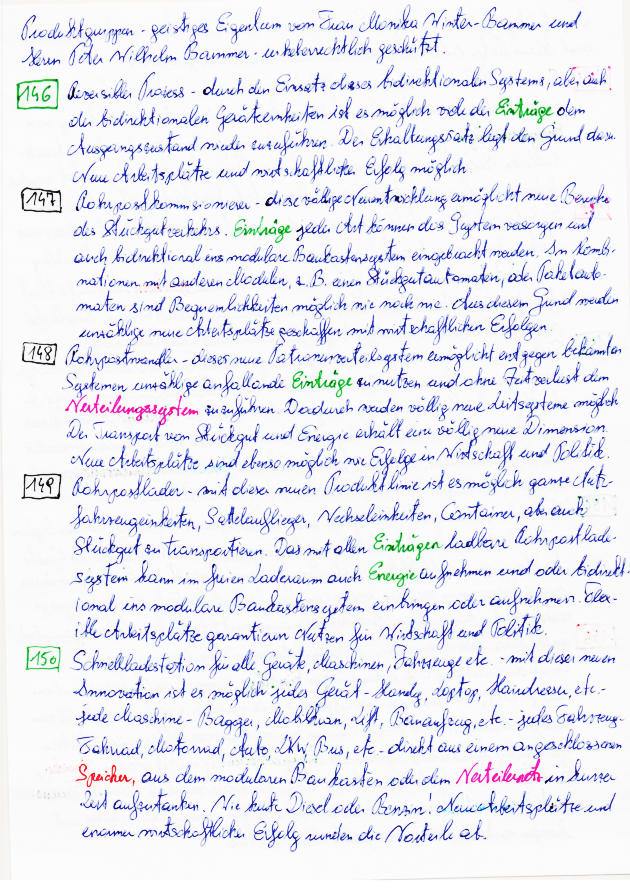 Produktgruppen - geistiges Eigentum von Frau Monika Winter-Bammer und
Herrn Peter Wilhelm Bammer - urheberrechtlich geschützt.
146 Reversibler Prozess - durch den Einsatz dieses bidirektionalen Systems, aber auch
der bidirektionalen Geräteeinheiten ist es möglich viele der Einträge dem
Ausgangszustand wieder zuzuführen. Der Erhaltungssatz legt den Grund dazu.
Neue Arbeitsplätze und wirtschaftlicher Erfolg möglich.
147 Rohrpostkommissionierer - diese völlige Neuentwicklung ermöglicht neue Bereiche
des Stückgutverkehrs. Einträge jeder Art können das System versorgen und
auch bidirektional ins modulare Baukastensystem eingebracht werden. In Kombi-
nationen mit anderen Modulen, z.B. einen Stückgutautomaten, oder Paketauto-
maten sind Bequemlichkeiten möglich wie noch nie. Aus diesem Grund werden
unzählige neue Arbeitsplätze geschaffen mit wirtschaftlichen Erfolgen.
148 Rohrpostwandler - dieses neue Patronenverteilsystem ermöglicht entgegen bekannten
Systemen unzählige anfallende Einträge zu nutzen und ohne Zeitverlust dem
Verteilungssystem zuzuführen. Dadurch werden völlig neue Leitsysteme möglich.
Der Transport von Stückgut und Energie erhält eine völlig neue Dimension.
Neue Arbeitsplätze sind ebenso möglich wie Erfolge in Wirtschaft und Politik.
149 Rohrpostlader - mit dieser neuen Produktlinie ist es möglich ganze Nutz-
fahrzeugeinheiten, Sattelauflieger, Wechseleinheiten, Container, aber auch
Stückgut zu transportieren. Das mit allen Einträgen ladbare Rohrpostlade-
system kann im freien Laderaum auch Energie aufnehmen und oder bidirekt-
ional ins modulare Baukastensystem einbringen oder aufnehmen.
Arbeitsplätze garantieren Nutzen für Wirtschaft und Politik.
150 Schnellladestation für alle Geräte, Maschinen, Fahrzeuge etc. - mit dieser neuen
Innovation ist es möglich jedes Gerät - Handy, Laptop, Hairdresser, etc. -
jede Maschine - Bagger, Mobilkran, Lift, Bauaufzug, etc. - jedes Fahrzeug -
Fahrrad, Motorrad, Auto, LKW, Bus, etc - direkt aus einem angeschlossenen
Speicher, aus dem modularen Baukasten oder dem Verteilernetz in kurzer
Zeit aufzutanken. Wie heute Diesel oder Benzin! Neue Arbeitsplätze und
enormer wirtschaftlicher Erfolg runden die Vorteile ab.